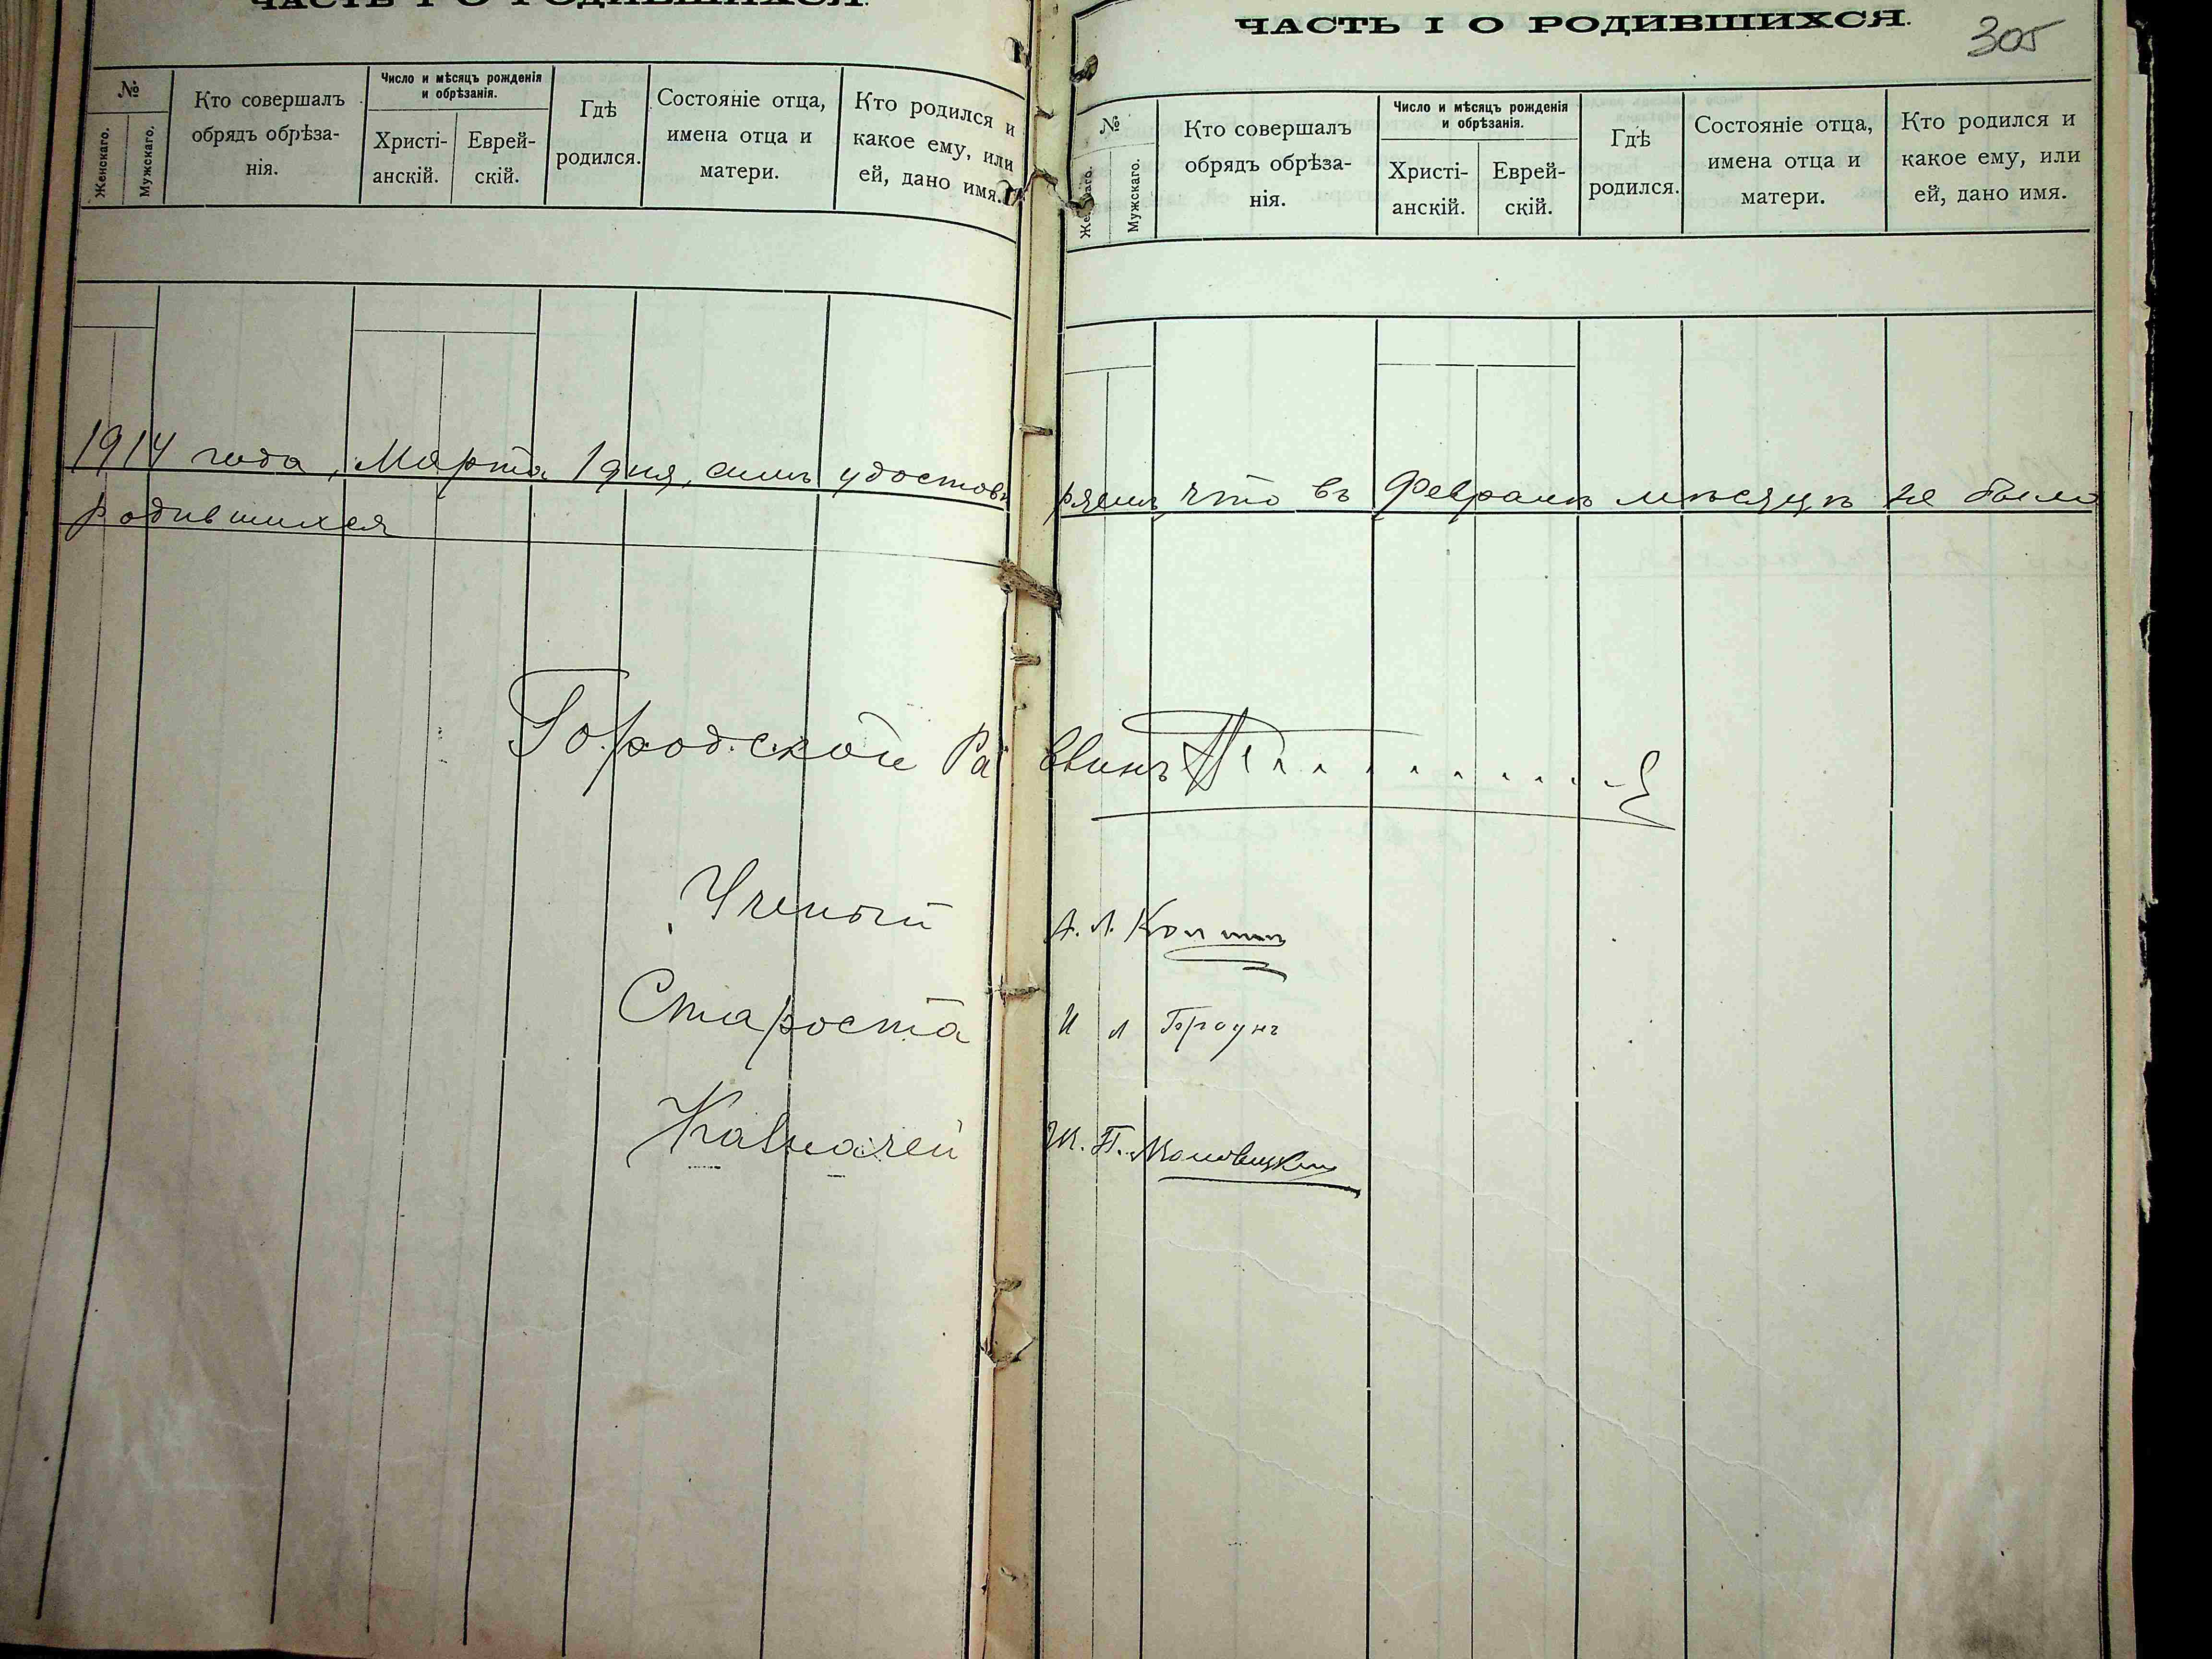 ЧАСТЬ I О РОДИВШИХСЯ.
№
Женскаго.
Мужскаго.
Кто совершалъ
обрядъ обрѣза-
нія.
Число и мѣсяцъ рожденія
и обрѣзанія.
Христі-
анскій.
Еврей-
скій.
Гдѣ
родился.
Состояніе отца,
имена отца и
матери.
Кто родился и
какое ему, или
ей, дано имя.
ЧАСТЬ I О РОДИВШИХСЯ.
305
№
Женскаго.
Мужскаго.
Кто совершалъ
обрядъ обрѣза-
нія.
Число и мѣсяцъ рожденія
и обрѣзанія.
Христі-
анскій.
Еврей-
скій.
Гдѣ
родился.
Состояніе отца,
имена отца и
матери.
Кто родился и
какое ему, или
ей, дано имя.
1914 года, Марта 1 дня, симъ удостовѣряемъ, что въ Февралѣ мѣсяцѣ не было
родившихся
Городской Раввинъ
Ученый А. Л.
Староста И Л Броунъ
Казначей